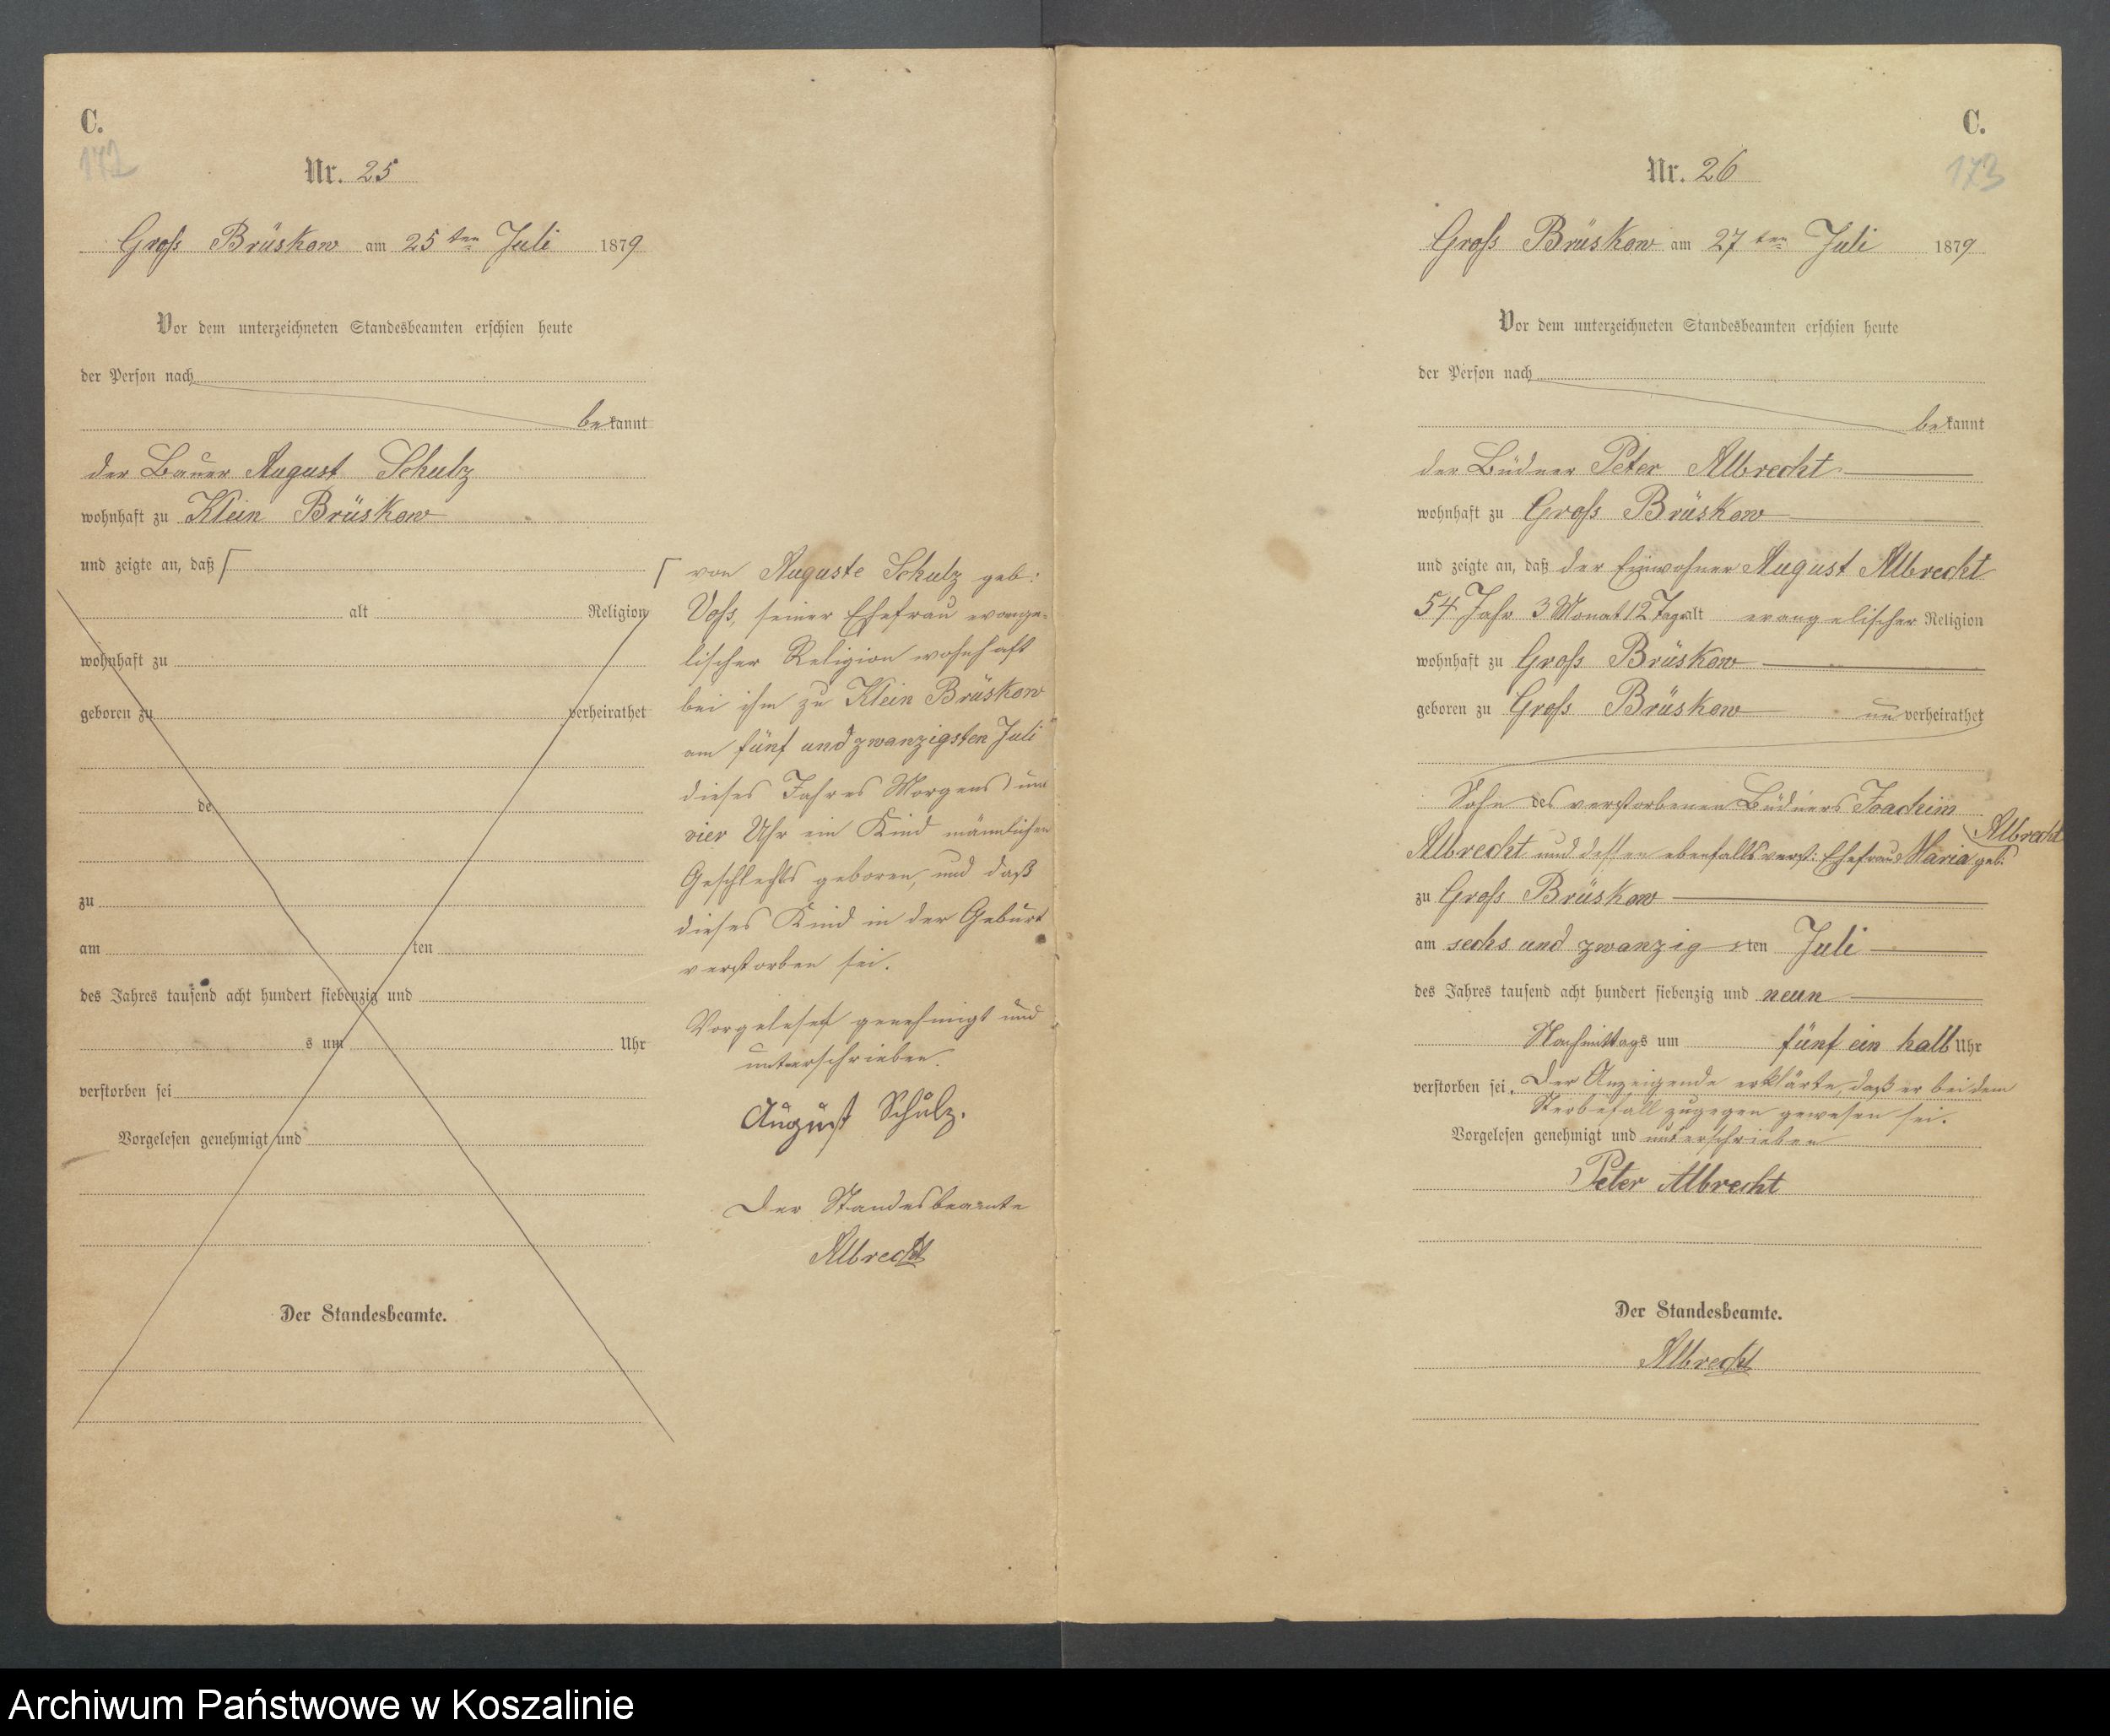 C.
172
Nr. 25
Groß Brüskow am 25ten Juli 1879
Vor dem unterzeichneten Standesbeamten erschien heute
der Person nach
bekannt
der Bauer August Schulz
wohnhaft zu Klein Brüskow
und zeigte an, daß
alt Religion
wohnhaft zu
geboren zu verheirathet
de
zu
am ten
des Jahres tausend acht hundert siebenzig und
s um Uhr
verstorben sei
Vorgelesen genehmigt und
Der Standesbeamte.
von Auguste Schulz geb:
Voß, seiner Ehefrau evange-
lischer Religion wohnhaft
bei ihm zu Klein Brüskow
am fünf und zwanzigsten Juli
dieses Jahres Morgens um
vier Uhr ein Kind männlichen
Geschlechts geboren, und daß
dieses Kind in der Geburt
verstorben sei.
Vorgelesen genehmigt und
unterschrieben.
August Schulz.
Der Standesbeamte
Albrecht
C.
173
Nr. 26
Groß Brüskow am 27ten Juli 1879
Vor dem unterzeichneten Standesbeamten erschien heute
der Person nach
bekannt
der Büdner Peter Albrecht
wohnhaft zu Groß Brüskow
und zeigte an, daß der Einwohner August Albrecht
54 Jahr 3 Monat 12 Tage alt evangelischer Religion
wohnhaft zu Groß Brüskow
geboren zu Groß Brüskow unverheirathet
Sohn des verstorbenen Büdners Joachim
Albrecht und dessen ebenfalls verst: Ehefrau Maria geb: Albrecht
zu Groß Brüskow
am sechs und zwanzig sten Juli
des Jahres tausend acht hundert siebenzig und neun
Nachmittags um fünf ein halb Uhr
verstorben sei. Der Anzeigende erklärte, daß er bei dem
Sterbefall zugegen gewesen sei.
Vorgelesen genehmigt und unterschrieben
Peter Albrecht
Der Standesbeamte.
Albrecht
Archiwum Państwowe w Koszalinie